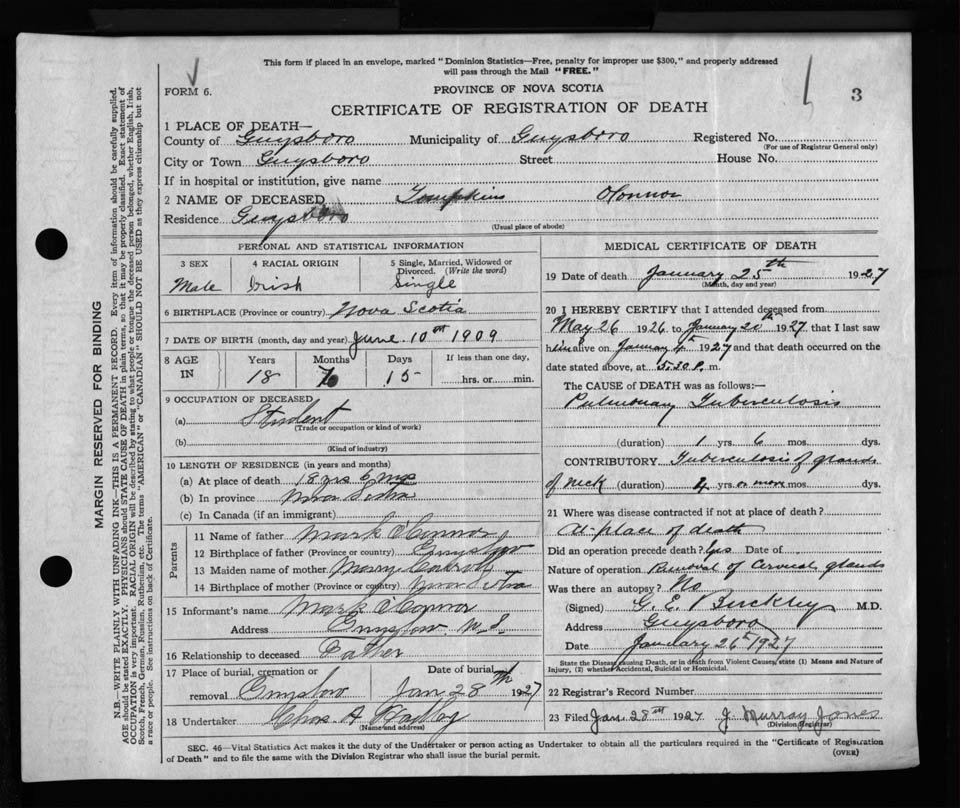 This form if placed in an envelope, marked "Dominion Statistics—Free, penalty for improper use $300," and properly addressed
will pass through the Mail "FREE."
FORM 6.
PROVINCE OF NOVA SCOTIA
3
CERTIFICATE OF REGISTRATION OF DEATH
1 PLACE OF DEATH—
County of Guysboro Municipality of Guysboro Registered No.
(For use of Registrar General only)
City or Town Guysboro Street House No.
If in hospital or institution, give name
2 NAME OF DECEASED Tompkins OConnor
Residence Guysboro
(Usual place of abode)
PERSONAL AND STATISTICAL INFORMATION
3 SEX 4 RACIAL ORIGIN 5 Single, Married, Widowed or
Divorced. (Write the word)
Male Irish Single
6 BIRTHPLACE (Province or country) Nova Scotia
7 DATE OF BIRTH (month, day and year) June 10th 1909
8 AGE Years Months Days If less than one day,
IN 18 7 15 hrs. or min.
9 OCCUPATION OF DECEASED
(a) Student
(Trade or occupation or kind of work)
(b)
(Kind of industry)
10 LENGTH OF RESIDENCE (in years and months)
(a) At place of death 18 yrs 6 mos
(b) In province Nova Scotia
(c) In Canada (if an immigrant)
Parents
11 Name of father Mark O'Connor
12 Birthplace of father (Province or country) Guysboro
13 Maiden name of mother Mary
14 Birthplace of mother (Province or country) Nova Scotia
15 Informant's name Mark O'Connor
Address Guysboro N.S.
16 Relationship to deceased Father
17 Place of burial, cremation or Date of burial
removal Guysboro Jan 28th 1927
18 Undertaker Chas. A
(Name and address)
MEDICAL CERTIFICATE OF DEATH
19 Date of death January 25th 1927
(Month, day and year)
20 I HEREBY CERTIFY that I attended deceased from
May 26 1926 to January 20th 1927 that I last saw
him alive on January 4th 1927 and that death occurred on the
date stated above, at 5.30 P. m.
The CAUSE OF DEATH was as follows:—
Pulmonary Tuberculosis
(duration) 1 yrs. 6 mos. dys.
CONTRIBUTORY Tuberculosis of glands
of neck (duration) 4 yrs. or more mos. dys.
21 Where was disease contracted if not at place of death?
At place of death
Did an operation precede death? Yes Date of
Nature of operation Removal of Cervical glands
Was there an autopsy? No
(Signed) G. E. Buckley M.D.
Address Guysboro
Date January 26th 1927
State the Disease causing Death, or in death from Violent Causes, state (1) Means and Nature of
Injury, (2) whether Accidental, Suicidal or Homicidal.
22 Registrar's Record Number
23 Filed Jan. 28th 1927 J. Murray Jones
(Division Registrar)
SEC. 46—Vital Statistics Act makes it the duty of the Undertaker or person acting as Undertaker to obtain all the particulars required in the "Certificate of Registration
of Death" and to file the same with the Division Registrar who shall issue the burial permit.
(OVER)
MARGIN RESERVED FOR BINDING
N.B.—WRITE PLAINLY WITH UNFADING INK—THIS IS A PERMANENT RECORD. Every item of information should be carefully supplied.
AGE should be stated EXACTLY. PHYSICIANS should STATE CAUSE OF DEATH in plain terms, so that it may be properly classified. Exact statement of
OCCUPATION is very important. RACIAL ORIGIN will be described by stating to what people or tongue the deceased person belonged, whether English, Irish,
Scotch, French, German, Russian, Ruthenian, etc. The terms "AMERICAN" or "CANADIAN" SHOULD NOT BE USED as they express citizenship but not
a race or people. See instructions on back of Certificate.